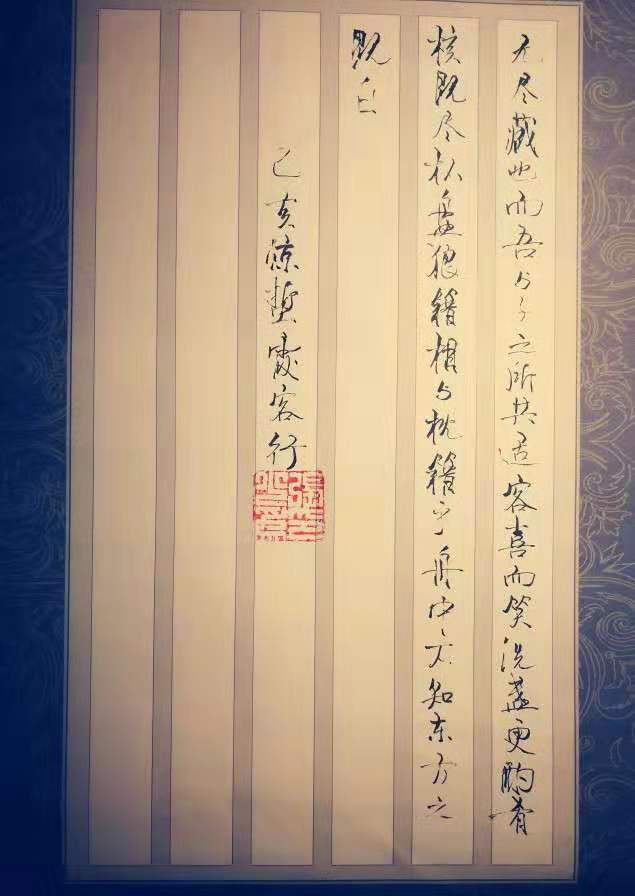 无尽藏也而吾与子之所共适客喜而笑洗盏更酌肴
核既尽杯盘狼籍相与枕籍乎舟中不知东方之
既白
己亥惊蛰霞客行